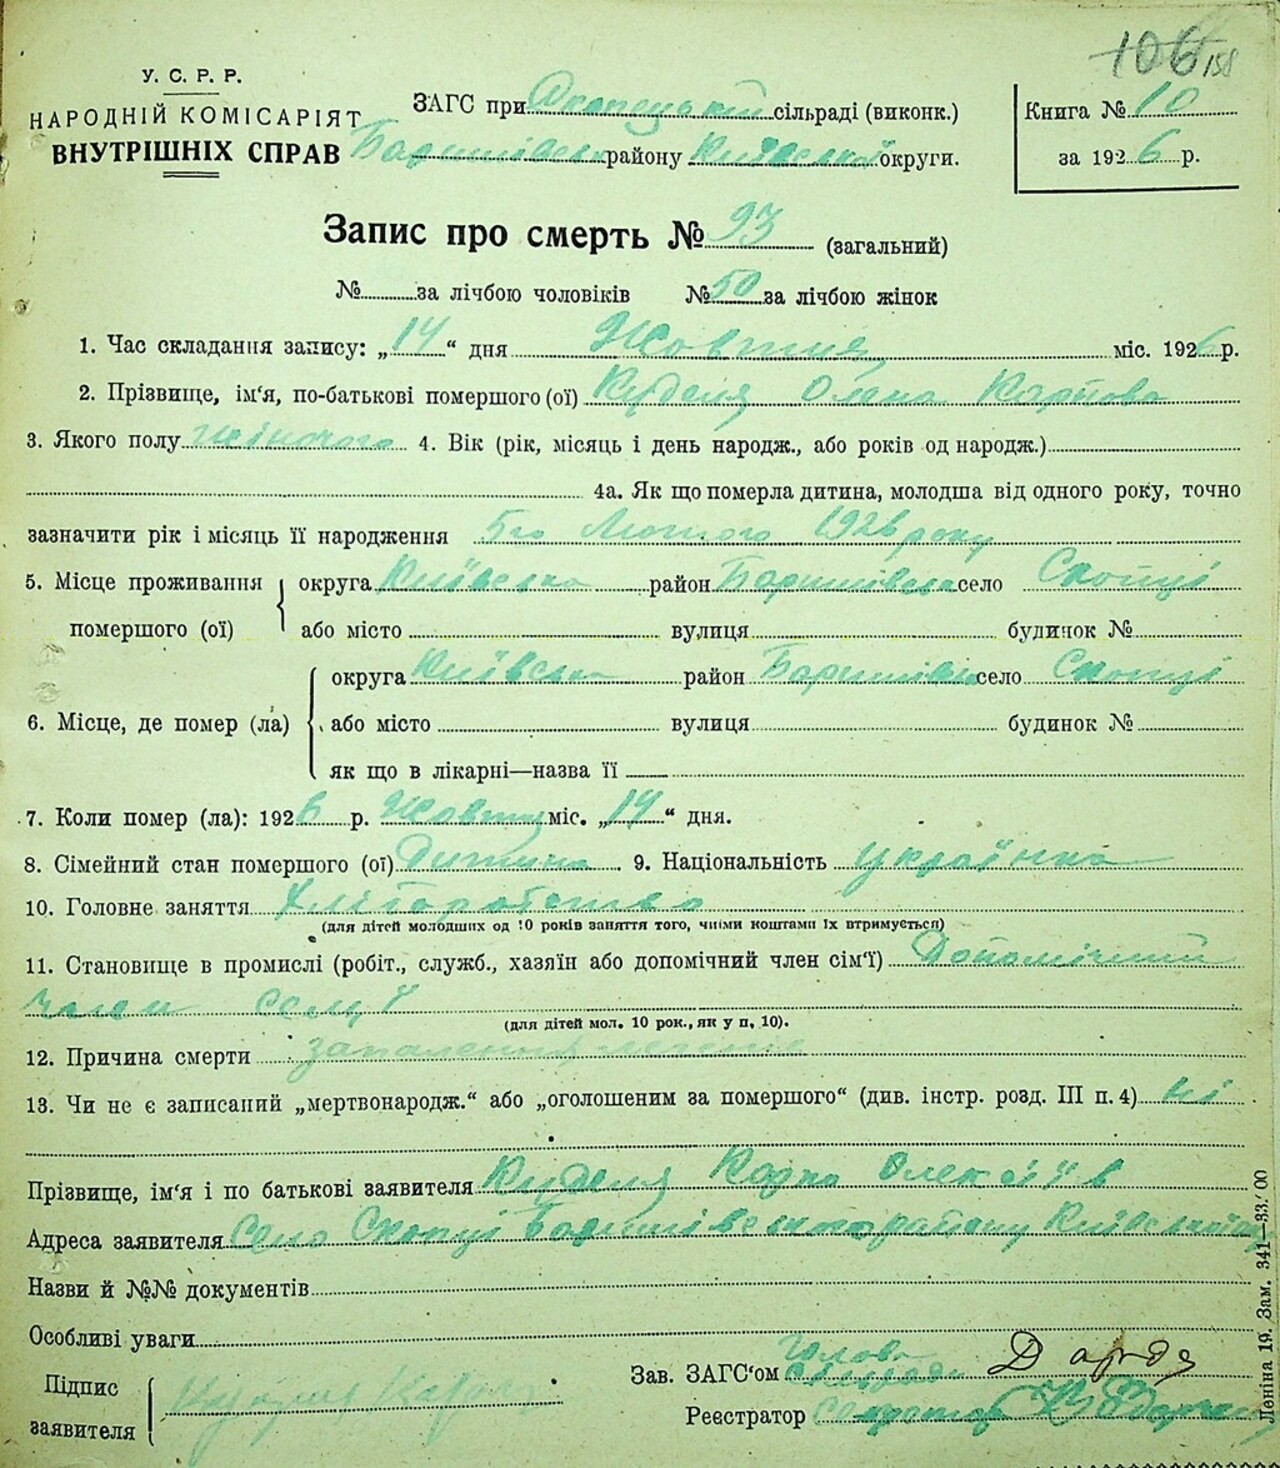 106 158
У. С. Р. Р.
НАРОДНІЙ КОМІСАРІЯТ
ВНУТРІШНІХ СПРАВ
ЗАГС при Скопецькій сільраді (виконк.)
Баришівсько району Київської округи.
Книга № 10
за 1926 р.
Запис про смерть № 93 (загальний)
№ за лічбою чоловіків № 50 за лічбою жінок
1. Час складання запису: „14“ дня Жовтня міс. 1926 р.
2. Прізвище, ім‘я, по-батькові помершого (ої) Куделя Олена Карпова
3. Якого полу жіночого 4. Вік (рік, місяць і день народж., або років од народж.)
4а. Як що померла дитина, молодша від одного року, точно
зазначити рік і місяць її народження 5го Лютого 1926 року
5. Місце проживання помершого (ої) округа Київська район Баришівськ село Скопці
або місто вулиця будинок №
6. Місце, де помер (ла) округа Київська район Баришівськ село Скопці
або місто вулиця будинок №
як що в лікарні—назва її
7. Коли помер (ла): 1926 р. Жовтня міс. „14“ дня.
8. Сімейний стан помершого (ої) Дитина 9. Національність українка
10. Головне заняття Хліборобство
(для дітей молодших од 10 років заняття того, чиїми коштами їх втримується)
11. Становище в промислі (робіт., служб., хазяїн або допомічний член сім‘ї) Допомічний
член семʼї
(для дітей мол. 10 рок., як у п. 10).
12. Причина смерти запалення легенів
13. Чи не є записаний „мертвонародж.“ або „оголошеним за помершого“ (див. інстр. розд. III п. 4) ні
Прізвище, ім‘я і по батькові заявителя Куделя Карпо Олексіїв
Адреса заявителя Село Скопці Баришівського району Київської
Назви й №№ документів
Особливі уваги
Підпис заявителя
Зав. ЗАГС‘ом Голова Сільради
Реєстратор Секретар
Леніна 19. Зам. 341—33/00